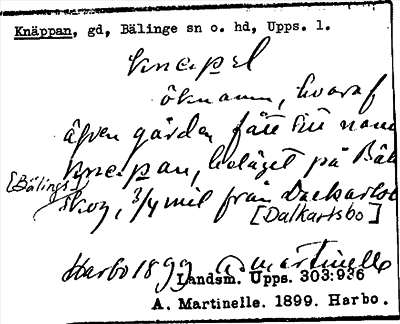 Knäppan, gd, Bälinge sn o. hd, Upps. l.
öknamn, hvaraf
äfven gården fått sitt namn
Knepan, beläget på Bäl
[Bälings]
skog, 3/4 mil från Dackarlsbo
[Dalkarlsbo]
Harbo 1899 A Martinelle
Landsm. Upps. 303:936
A. Martinelle. 1899. Harbo.